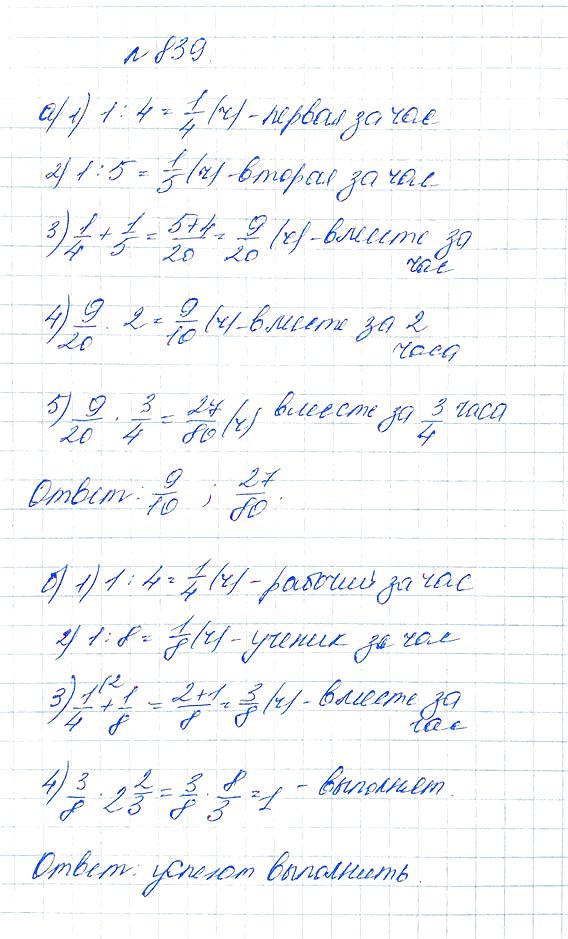 № 839.
а) 1) 1 : 4 = 1/4 (ч) - первая за час
2) 1 : 5 = 1/5 (ч) - вторая за час
3) 1/4 + 1/5 = 5+4/20 = 9/20 (ч) - вместе за
час
4) 9/20 · 2 = 9/10 (ч) - вместе за 2
часа
5) 9/20 · 3/4 = 27/80 (ч) вместе за 3/4 часа
Ответ: 9/10 ; 27/80.
б) 1) 1 : 4 = 1/4 (ч) - рабочий за час
2) 1 : 8 = 1/8 (ч) - ученик за час
3) 1/4 (2 + 1/8 = 2+1/8 = 3/8 (ч) - вместе за
час
4) 3/8 · 2 2/3 = 3/8 · 8/3 = 1 - выполнят.
Ответ: успеют выполнить.